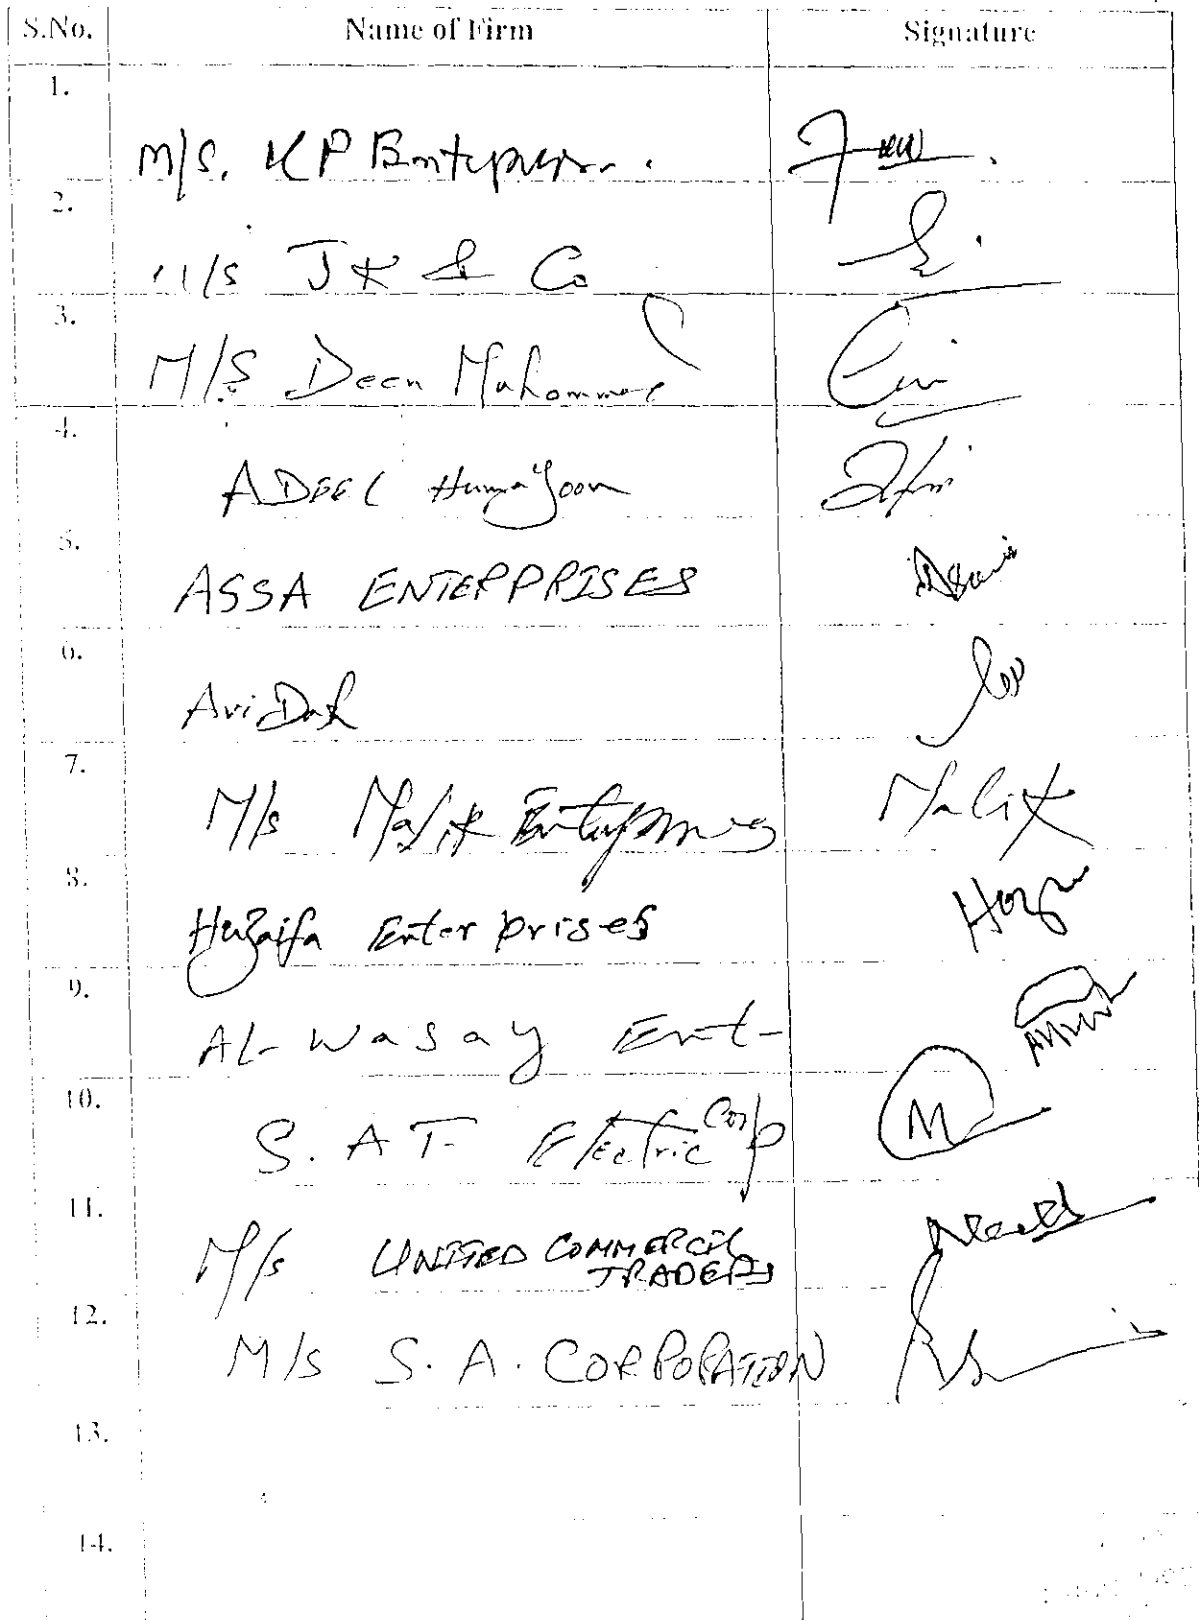 S.No. Name of Firm Signature
1.
M/S. KP Enterprises.
2.
M/s JK & Co
3.
M/S Deen Mohammed
4.
ADEEL Humayoon
5.
ASSA ENTERPPRISES
6.
7.
M/s Malik Enterprises Malik
8.
Huzaifa Enterprises
9.
AL-Wasay Ent-
10.
S.A T- Electric Corp M
11.
M/s UNITED COMMERCIL
TRADERS
12.
M/s S.A. CORPORATION
13.
14.